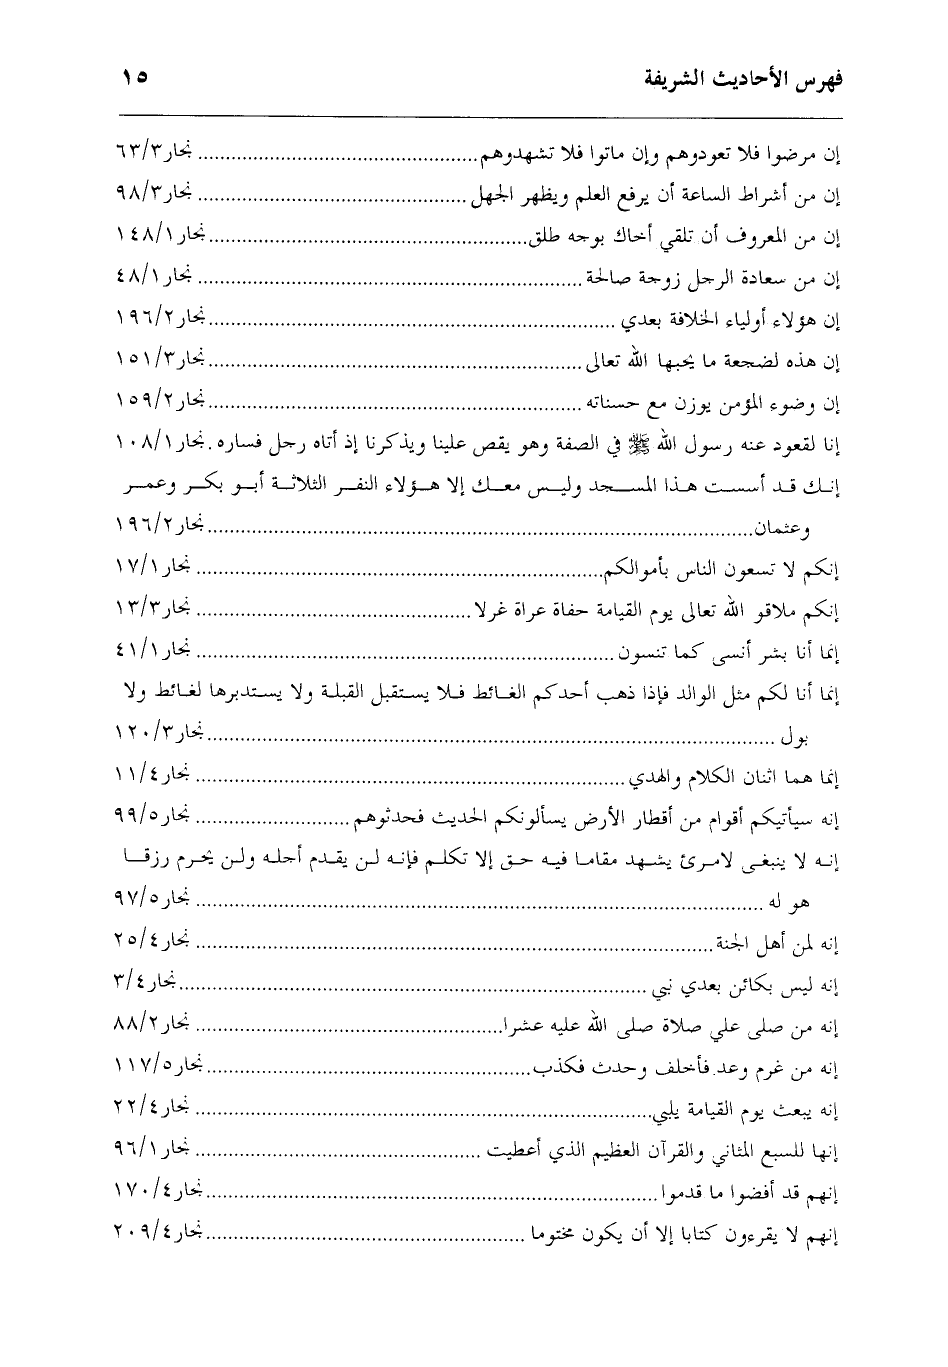 فهرس الأحاديث الشريفة ١٥
إن مرضوا فلا تعودوهم وإن ماتوا فلا تشهدوهم................................................ نحار٦٣/٣
إن من أشراط الساعة أن يرفع العلم ويظهر الجهل ................................................ نحار٩٨/٣
إن من المعروف أن تلقي أخاك بوجه طلق......................................................... نحار١٤٨/١
إن من سعادة الرجل زوجة صالحة .................................................................... نحار٤٨/١
إن هؤلاء أولياء الخلافة بعدي ......................................................................... نحار١٩٦/٢
إن هذه لضجعة ما يحبها الله تعالى.................................................................... نحار١٥١/٣
إن وضوء المؤمن يوزن مع حسناته .................................................................... نحار١٥٩/٢
إنا لقعود عنه رسول الله ﷺ في الصفة وهو يقص علينا ويذكرنا إذ أتاه رجل فساره .نحار١٠٨/١
إنك قد أسست هذا المسجد وليس معك إلا هؤلاء النفر الثلاثة أبو بكر وعمر
وعثمان.................................................................................................. نحار١٩٦/٢
إنكم لا تسعون الناس بأموالكم......................................................................... نحار١٧/١
إنكم ملاقو الله تعالى يوم القيامة حفاة عراة غرلا ................................................. نحار١٣/٣
إنما أنا بشر أنسى كما تنسون ......................................................................... نحار٤١/١
إنما أنا لكم مثل الوالد فإذا ذهب أحدكم الغائط فلا يستقبل القبلة ولا يستدبرها لغائط ولا
بول ...................................................................................................... نحار١٢٠/٣
إنما هما اثنان الكلام والهدي ............................................................................ نحار١١/٤
إنه سيأتيكم أقوام من أقطار الأرض يسألونكم الحديث فحدثوهم ............................ نحار٩٩/٥
إنه لا ينبغى لامرئ يشهد مقاما فيه حق إلا تكلم فإنه لن يقدم أجله ولن يحرم رزقا
هو له .................................................................................................... نحار٩٧/٥
إنه لمن أهل الجنة ............................................................................................ نحار٢٥/٤
إنه ليس بكائن بعدي نبي .................................................................................. نحار٣/٤
إنه من صلى علي صلاة صلى الله عليه عشرا...................................................... نحار٨٨/٢
إنه من غرم وعد.فأخلف وحدث فكذب......................................................... نحار١١٧/٥
إنه يبعث يوم القيامة يلبي................................................................................. نحار٢٢/٤
إنها للسبع المثاني والقرآن العظيم الذي أعطيت ................................................... نحار٩٦/١
إنهم قد أفضوا ما قدموا ................................................................................. نحار١٧٠/٤
إنهم لا يقرءون كتابا إلا أن يكون مختوما ......................................................... نحار٢٠٩/٤